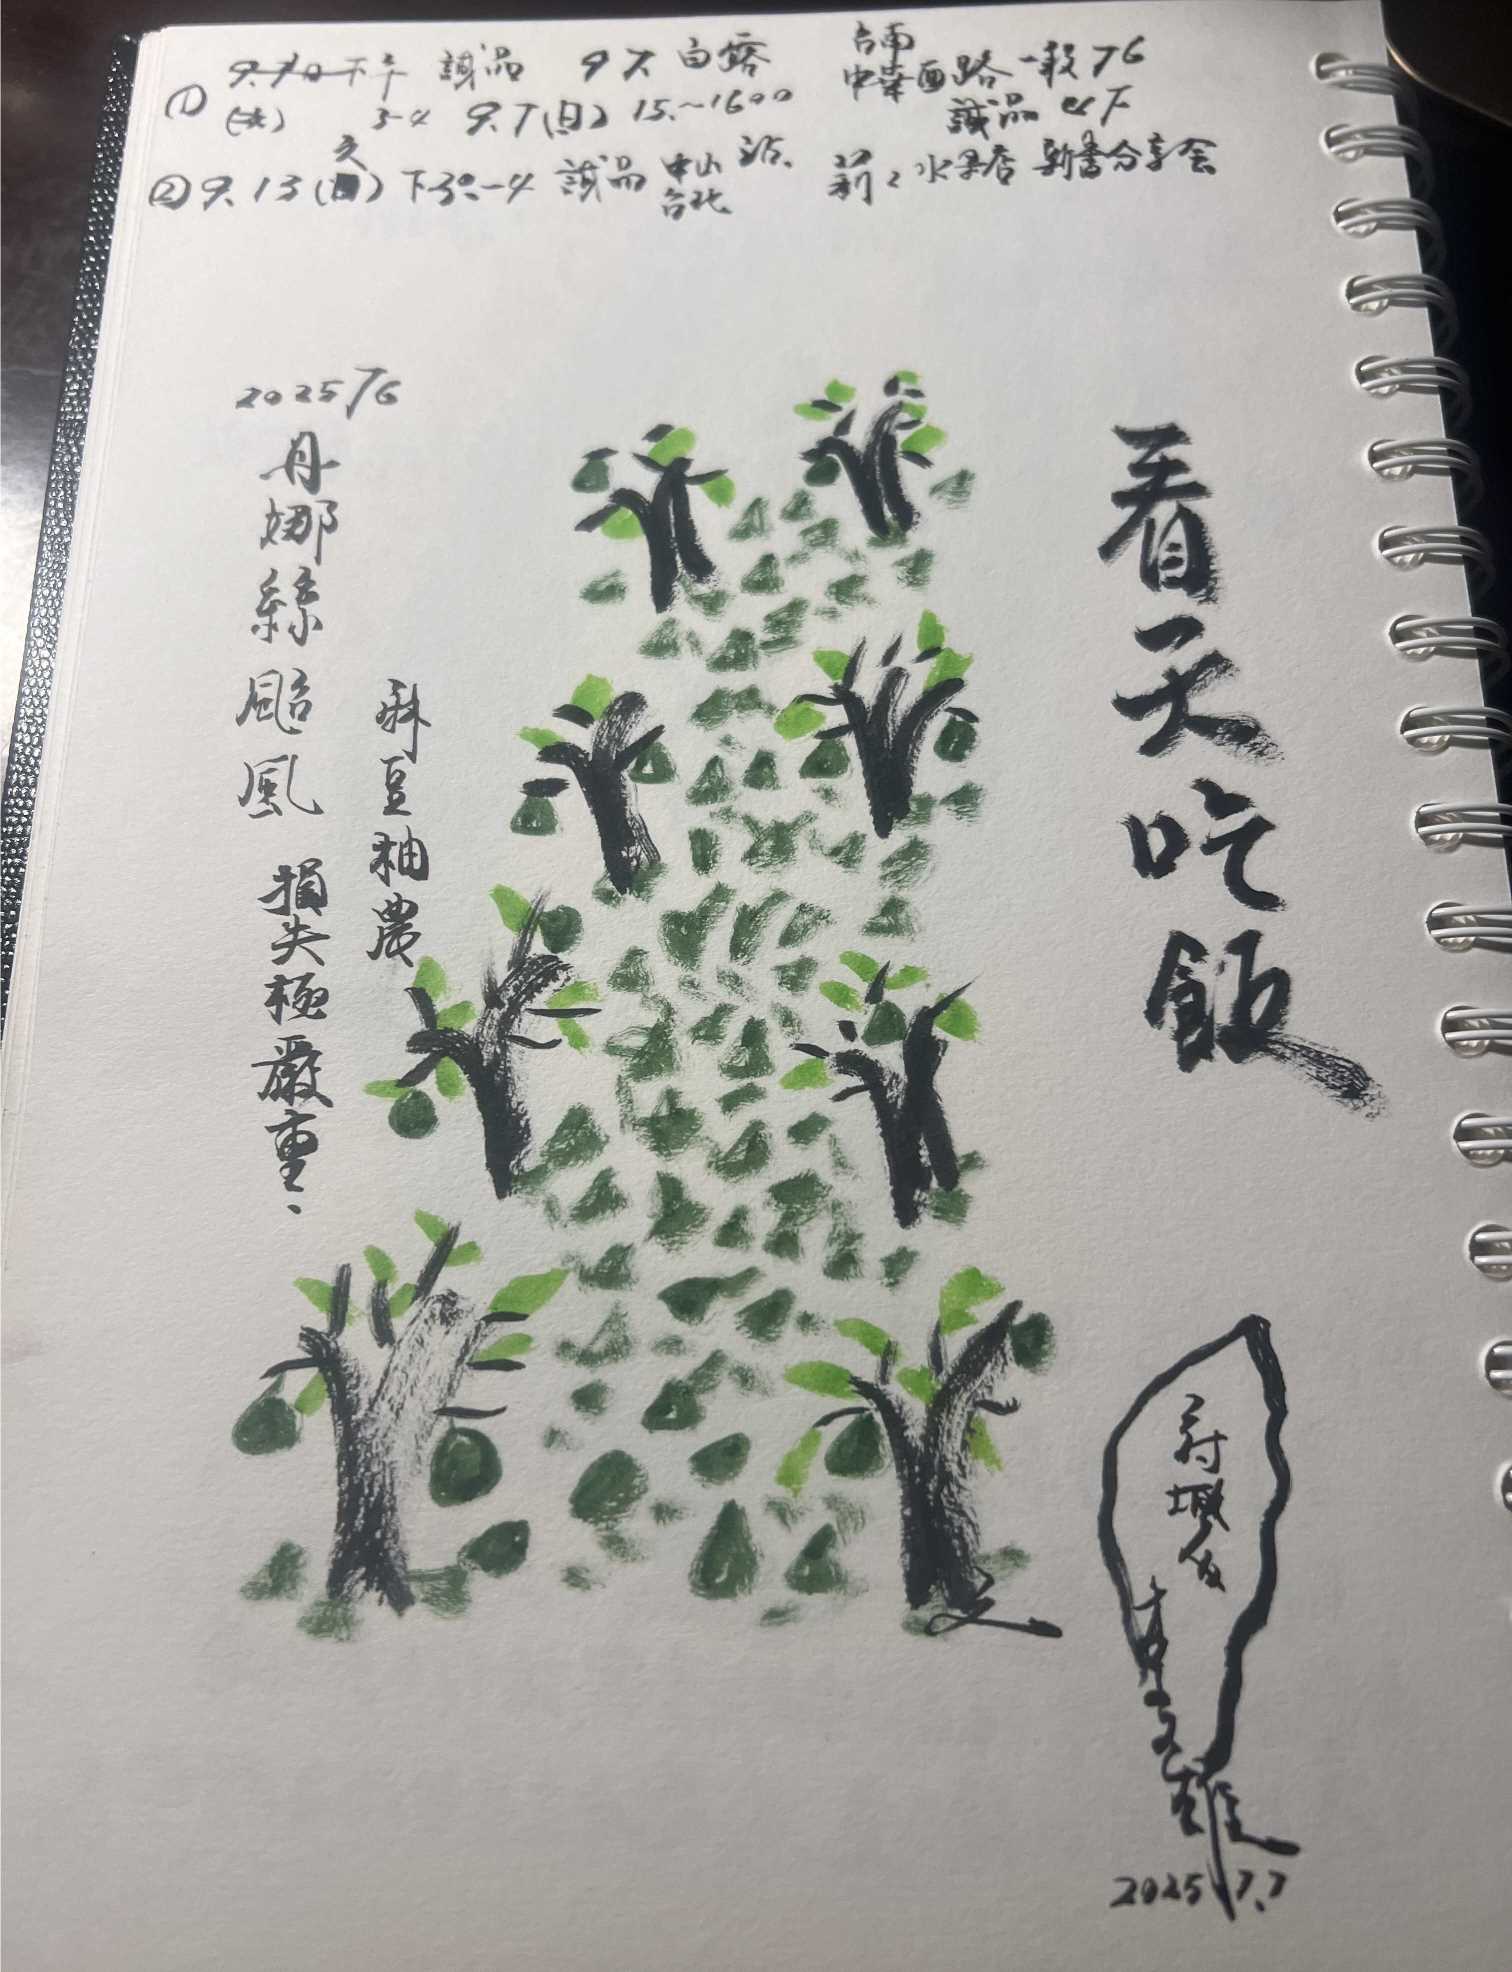 ① 9.7日下午 誠品 9 7. 白露 台南 中華西路一段76
3-4 9.7(日) 15.~1600 誠品
②9.13(六) 下3:-4 誠品 中山站、台北 莉莉水果店 新書分享会
看天吃飯
2025 7/6
丹娜絲颱風 損失極嚴重、
麻豆柚農
府城人
李文雄
2025.7.7